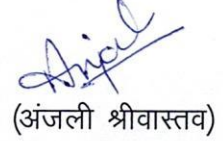 Anjali
(अंजली श्रीवास्तव)